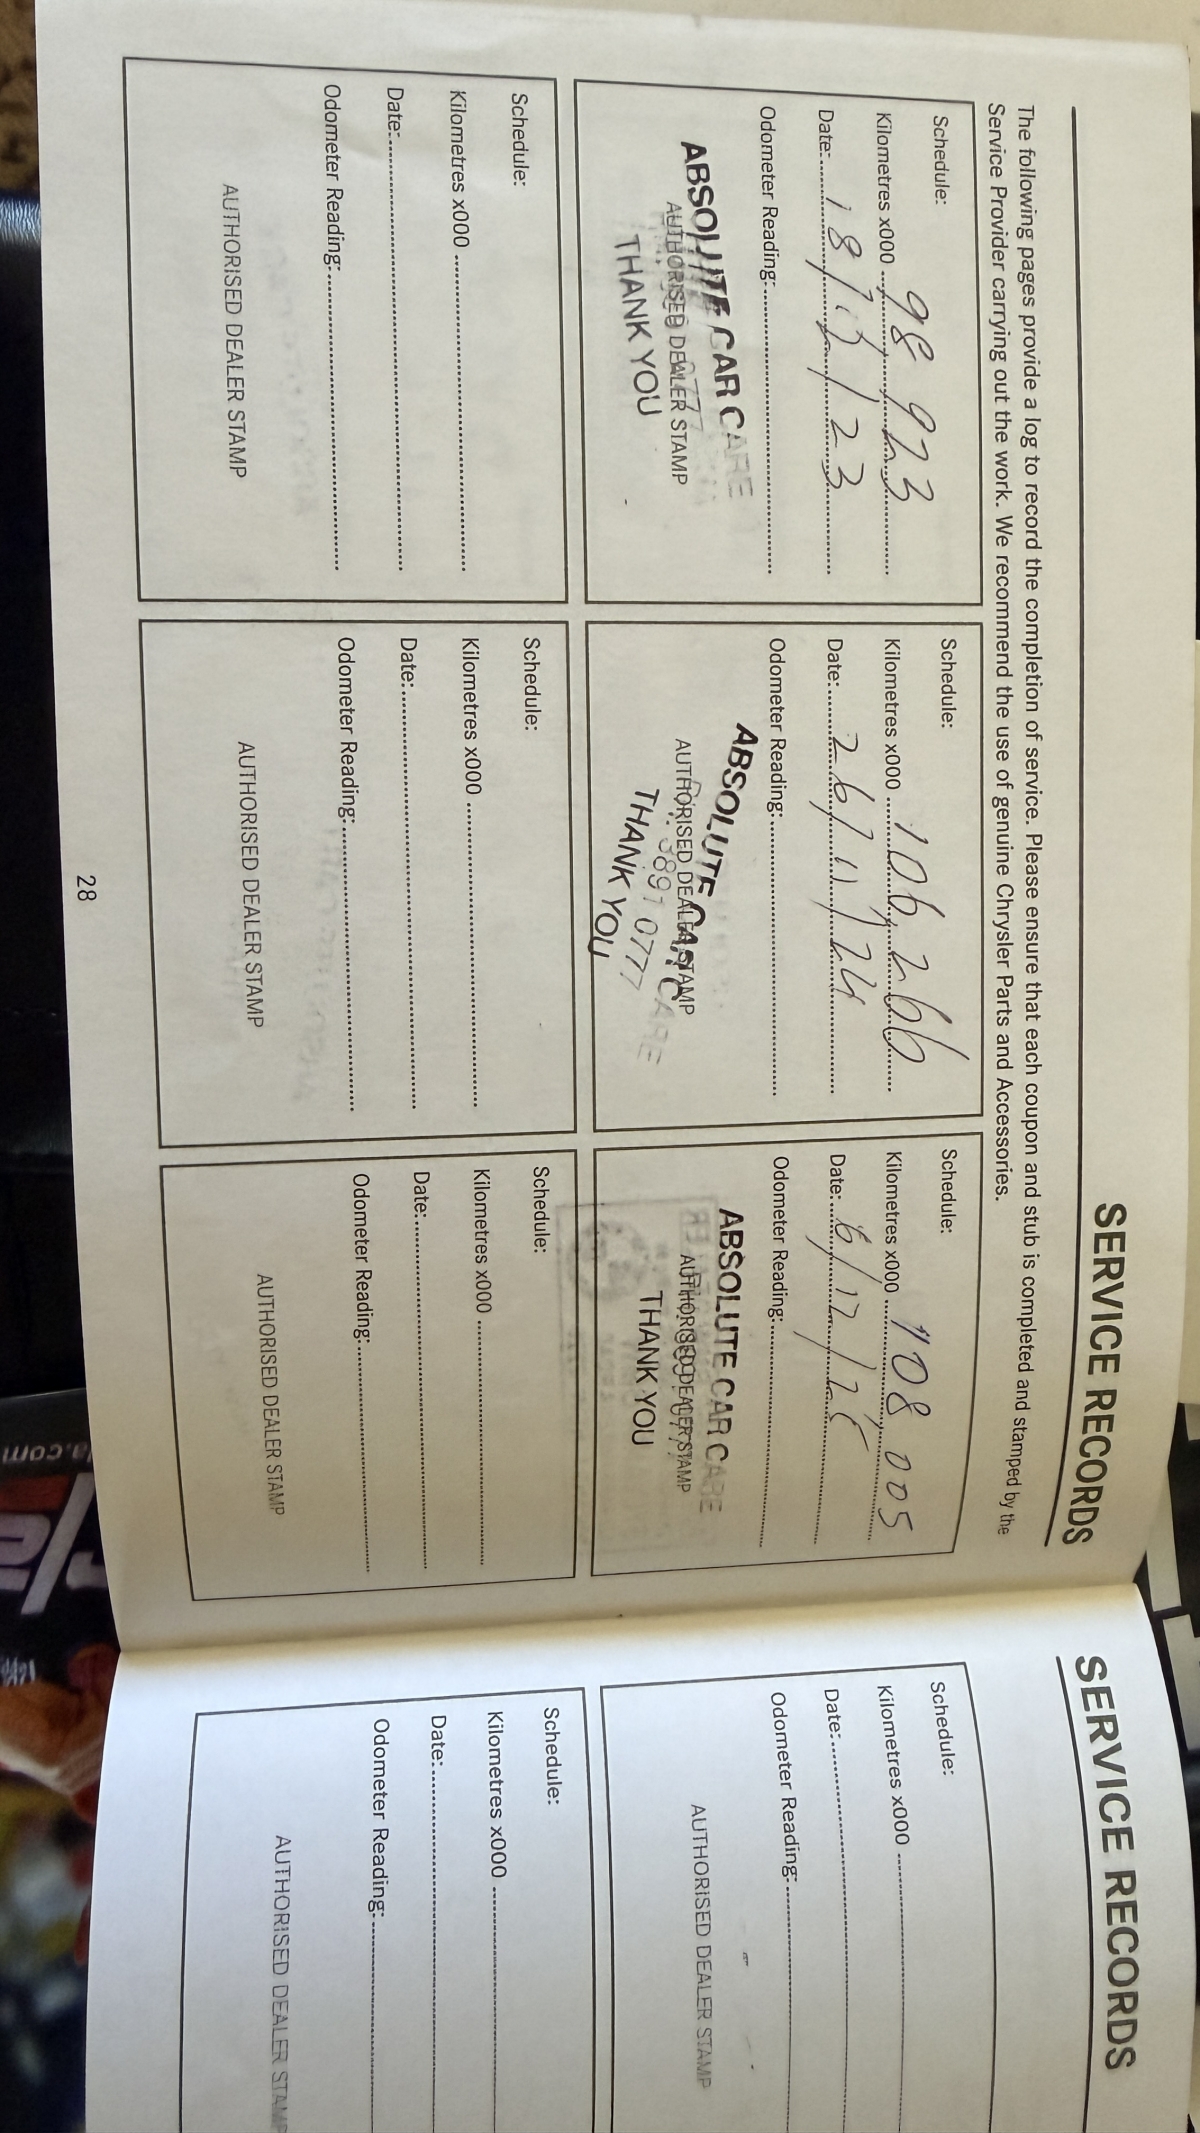 SERVICE RECORDS
The following pages provide a log to record the completion of service. Please ensure that each coupon and stub is completed and stamped by the
Service Provider carrying out the work. We recommend the use of genuine Chrysler Parts and Accessories.
Schedule:
Kilometres x000 98 923
Date: 18/ /23
Odometer Reading:
ABSOLUTE CAR CARE
AUTHORISED DEALER STAMP
THANK YOU
Schedule:
Kilometres x000 106,266
Date: 26/11/24
Odometer Reading:
ABSOLUTE CAR CARE
AUTHORISED DEALER STAMP
0777
THANK YOU
Schedule:
Kilometres x000 108 005
Date: 6/12/25
Odometer Reading:
ABSOLUTE CAR CARE
AUTHORISED DEALER STAMP
THANK YOU
Schedule:
Kilometres x000
Date:
Odometer Reading:
AUTHORISED DEALER STAMP
Schedule:
Kilometres x000
Date:
Odometer Reading:
AUTHORISED DEALER STAMP
Schedule:
Kilometres x000
Date:
Odometer Reading:
AUTHORISED DEALER STAMP
28
SERVICE RECORDS
Schedule:
Kilometres x000
Date:
Odometer Reading:
AUTHORISED DEALER STAMP
Schedule:
Kilometres x000
Date:
Odometer Reading:
AUTHORISED DEALER STAMP